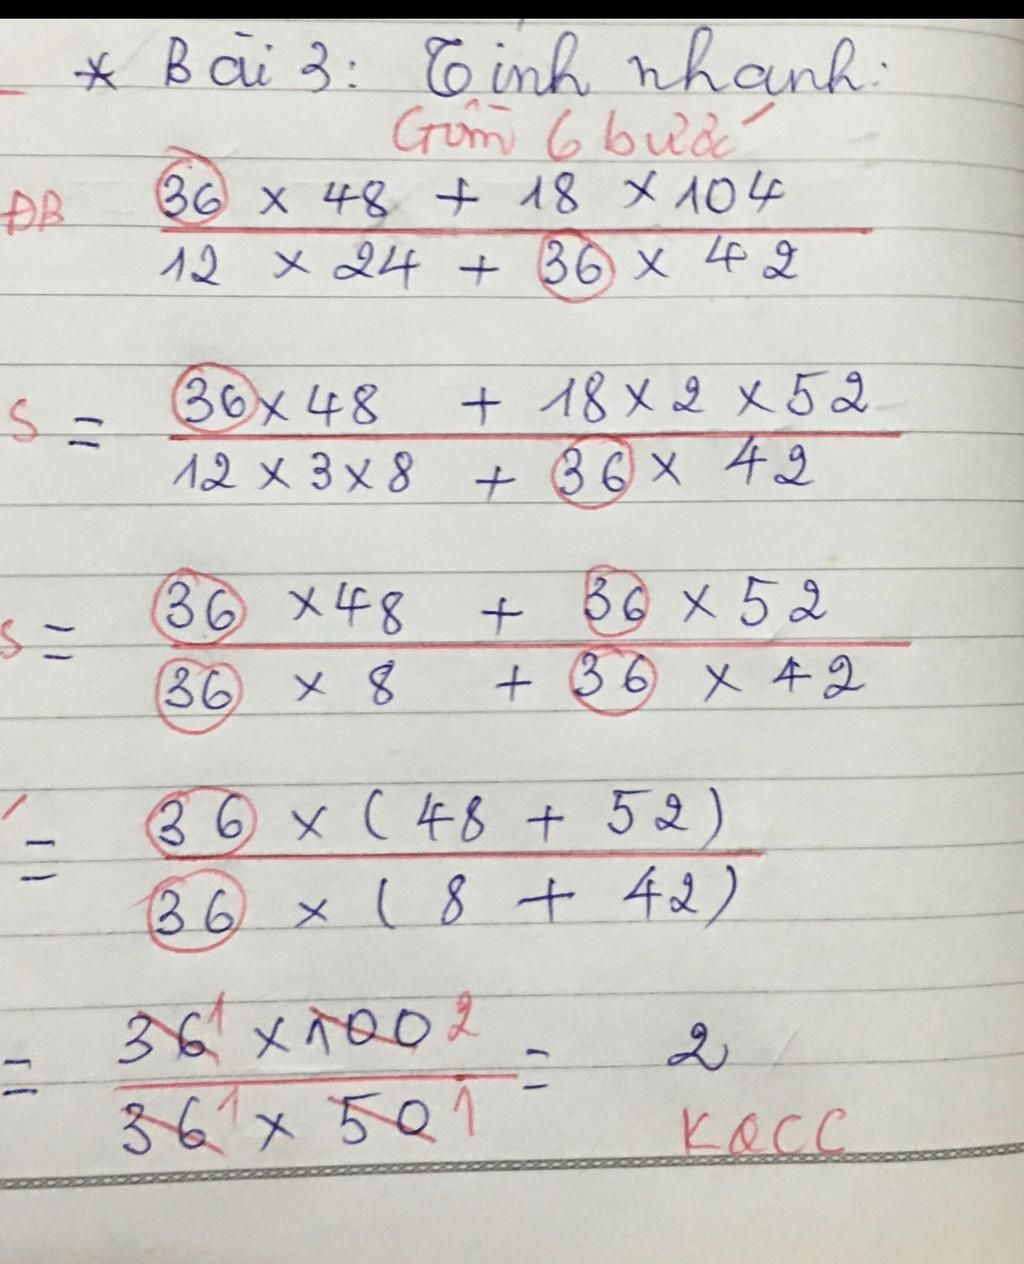 * Bài 3: Tính nhanh:
Gồm 6 bước
ĐB 36 × 48 + 18 × 104
12 × 24 + 36 × 42
S = 36 × 48 + 18 × 2 × 52
12 × 3 × 8 + 36 × 42
S = 36 × 48 + 36 × 52
36 × 8 + 36 × 42
= 36 × (48 + 52)
36 × (8 + 42)
= 36 1 × 100 2 = 2
36 1 × 50 1 KQCC